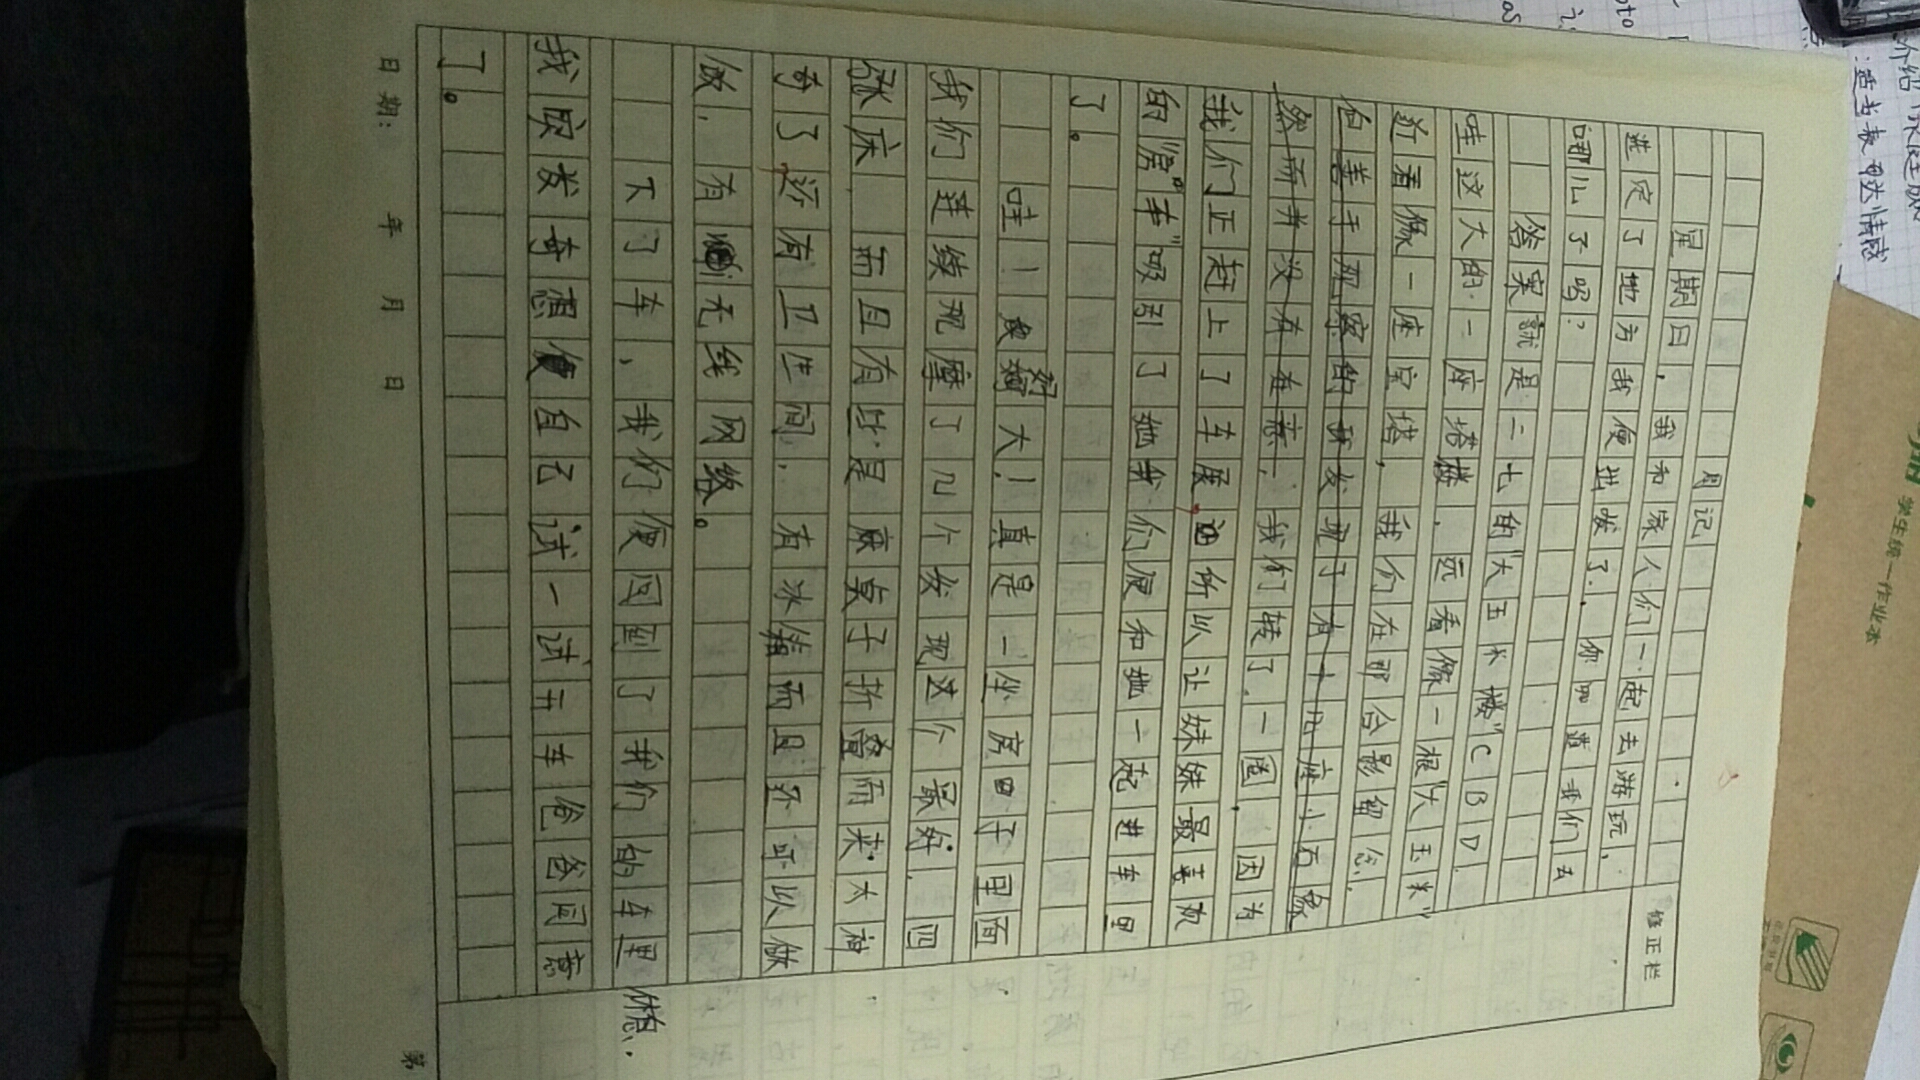 周记
星期日，我和家人们一起去游玩，
选定了地方我便出发了，你知道我们去
哪儿了吗？
答案就是二七的“大玉米楼”CBD
哇这大的一座塔楼，远看像一根“大玉米”
近看像一座宝塔，我们在那合影留念，
然而并没有在意，我们转了一圈，因为
我们正赶上了车展，所以让妹妹最喜欢
的“房车”吸引了她我们便和她一起进车里
了。
哇！良好大！真是一坐房子里面
我们连续观摩了几个发现这个最好，四
张床 而且有比是麻桌子折叠而来太神
奇了还有卫生间，有冰箱而且还可以做
饭，有无线网络。
下了车，我们便回到了我们的车里休息，
我股发奇想便自己试一试开车爸爸同意
了。
日期： 年 月 日
第
修正栏
学生统一作业本
适当表达情感